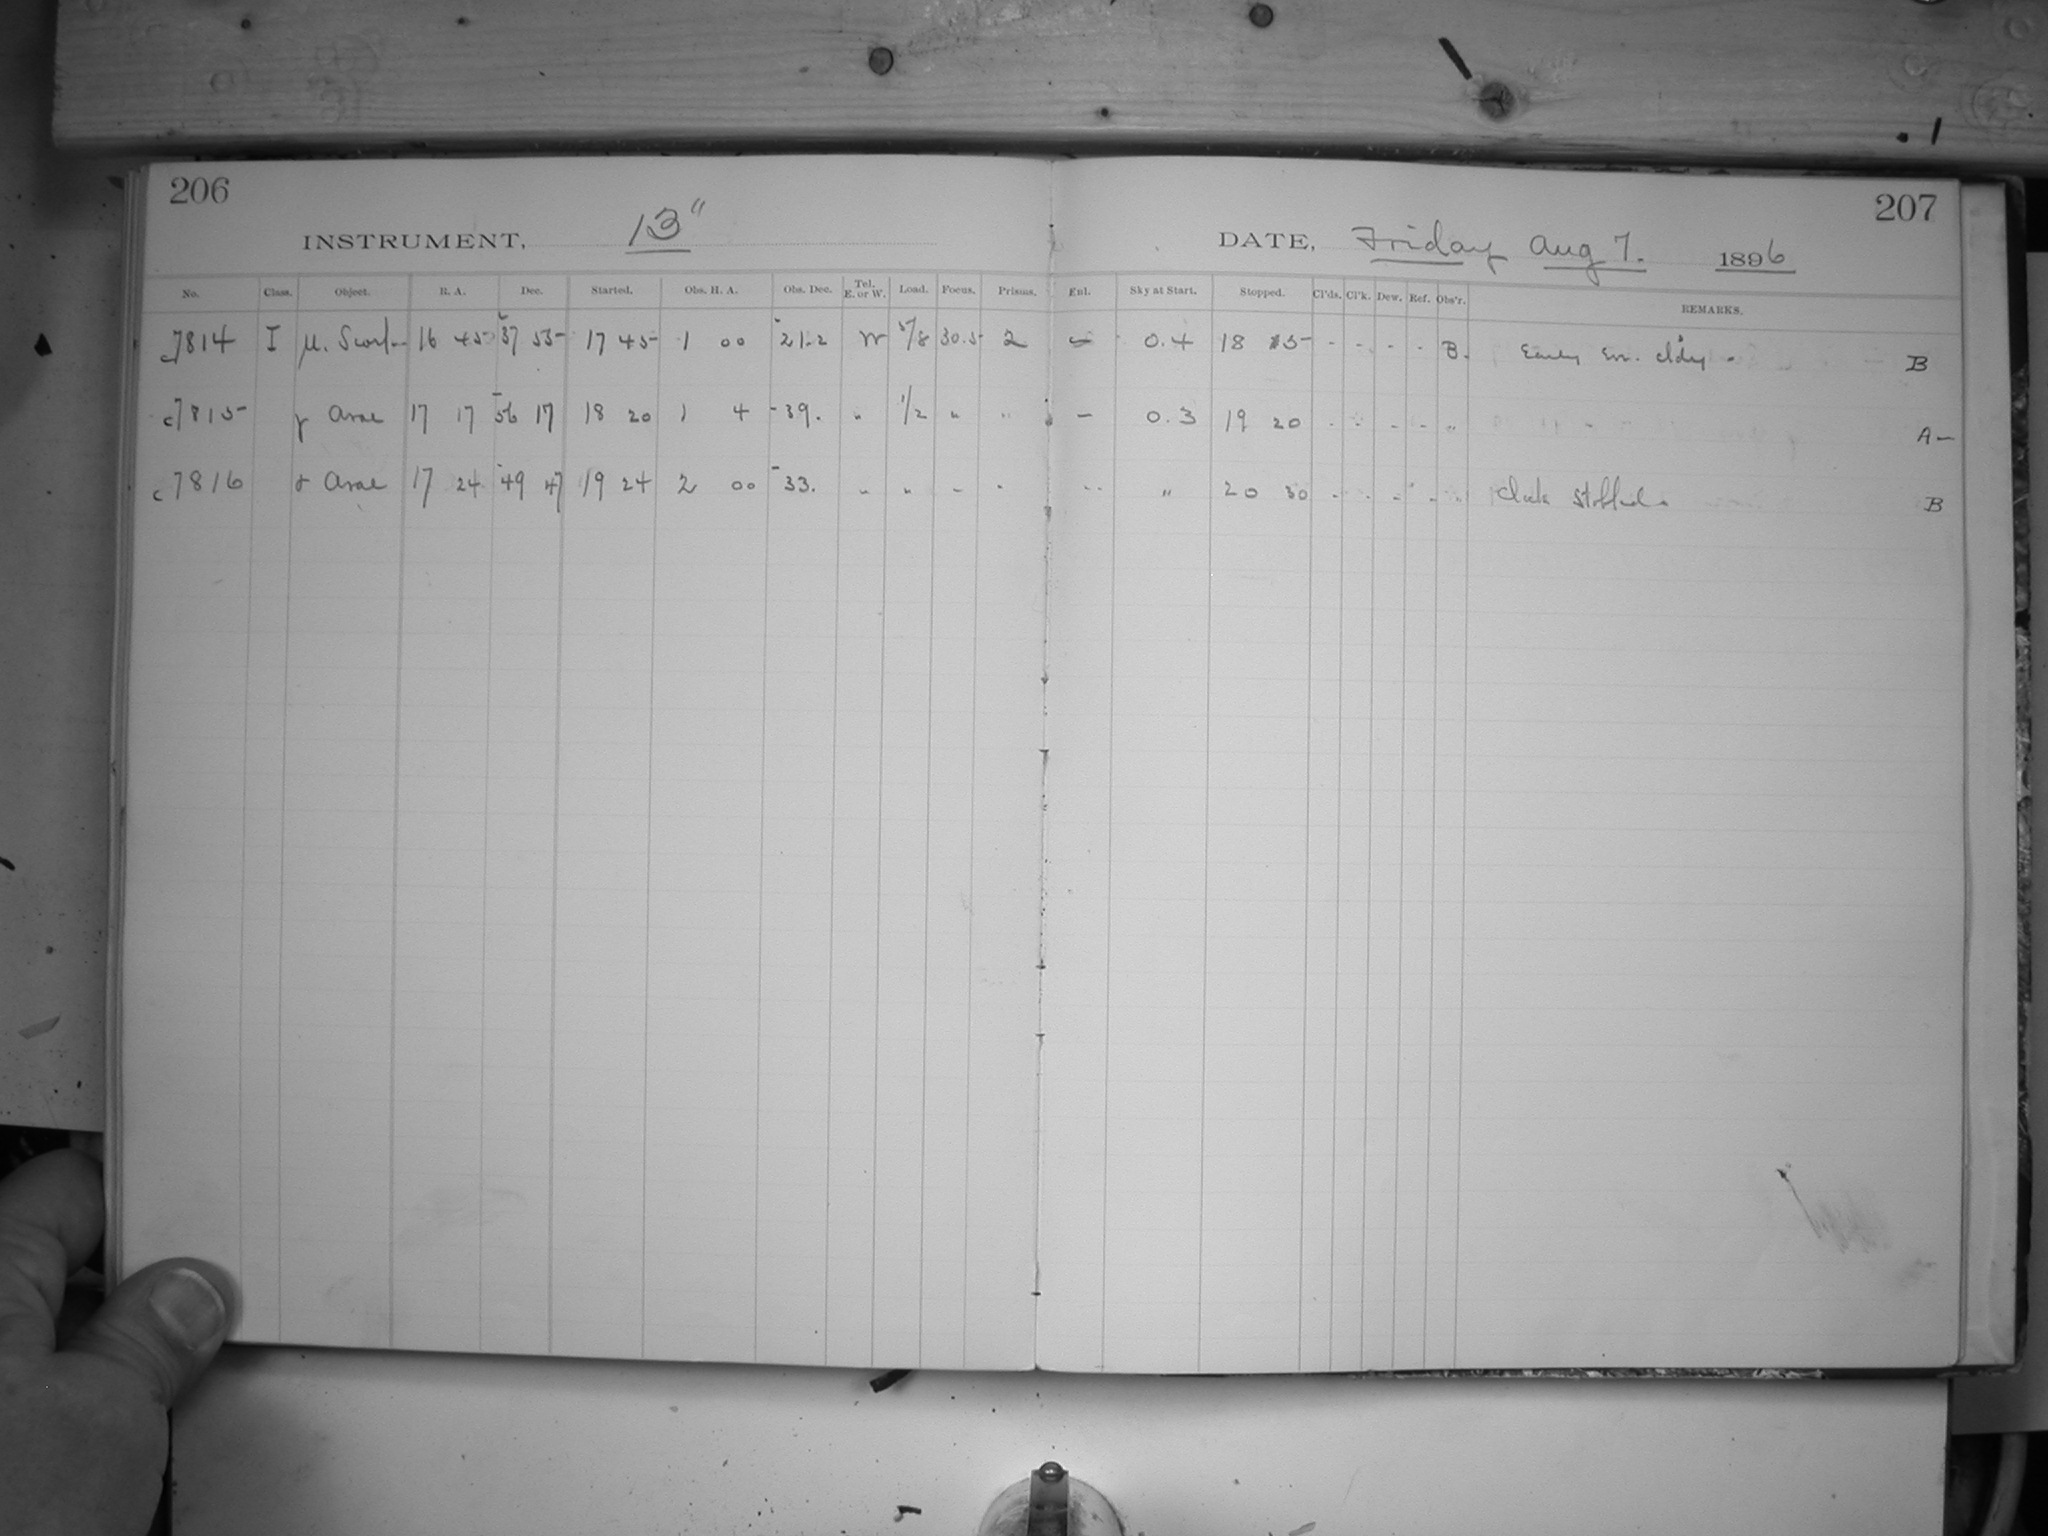 206 207
INSTRUMENT, 13" DATE, Friday Aug 7. 1896
No. Class. Object. R. A. Dec. Started. Obs. H. A. Obs. Dec. Tel. E. or W. Load. Focus. Prisms. Enl. Sky at Start. Stopped. Cl'ds. Cl'k. Dew. Ref. Obs'r. REMARKS.
c7814 I μ. Scorp. 16 45 -37 53 17 45 1 00 -21.2 W 5/8 30.5 2 - 0.4 18 15 - - - - B. Early Ev. cldy. B
c7815 γ Arae 17 17 -56 17 18 20 1 4 -39. " 1/2 " " - 0.3 19 20 - - - - " A-
c7816 α Arae 17 24 -49 47 19 24 2 00 -33. " " " " - " 20 30 - - - - " Clock stopped. B